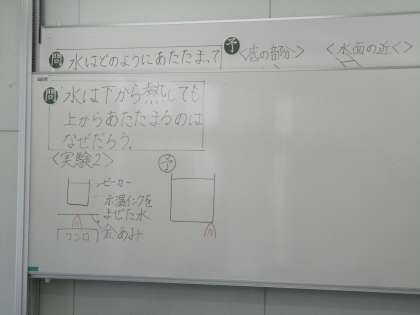 問 水はどのようにあたたまって
予 <底の部分> <水面の近く>
問 水は下から熱しても
上からあたたまるのは
なぜだろう。
<実験2>
予
ビーカー
示温インクを
よぜた水
金あみ
コンロ